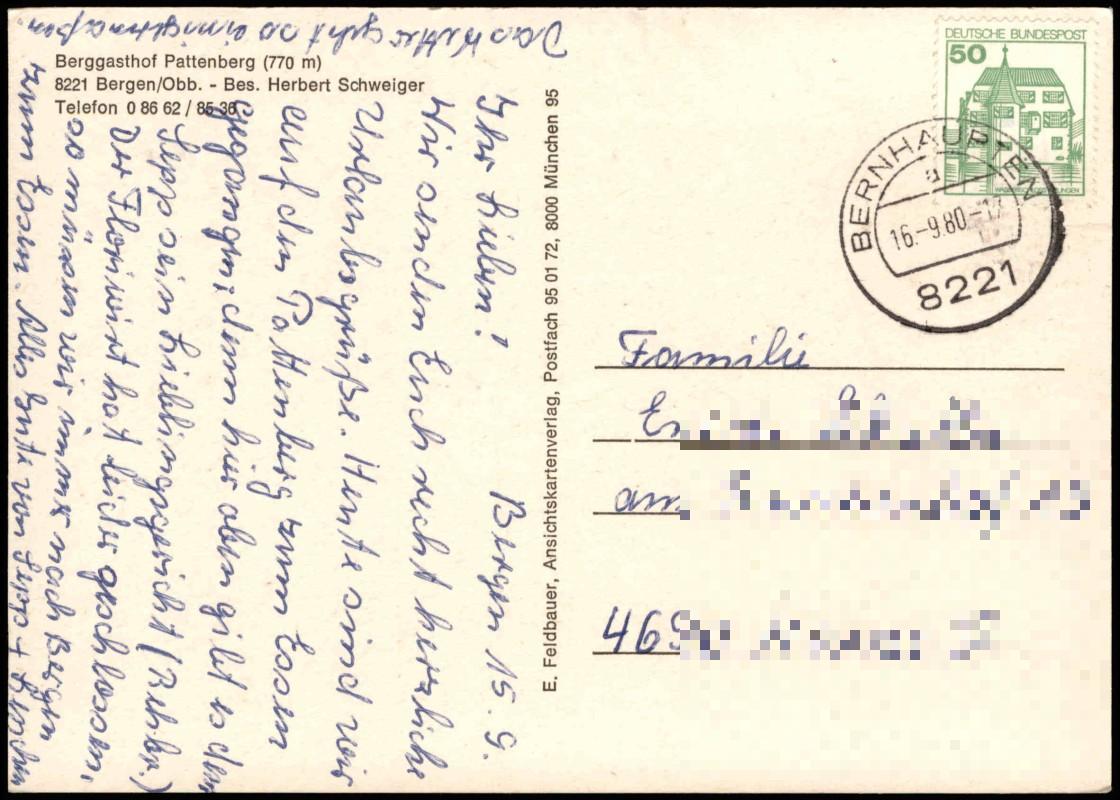 Berggasthof Pattenberg (770 m)
8221 Bergen/Obb. - Bes. Herbert Schweiger
Telefon 0 86 62 / 85 36
Bergen 15. 9.
Ihr Lieben!
Wir senden Euch recht herzliche
Urlaubsgrüße. Heute sind wir
auf den Pattenberg zum Essen
gegangen, denn hier oben gibt es dem
Sepp sein Lieblingsgericht
Der Floriwirt hat leider geschlossen,
so müssen wir immer nach Bergen
zum Essen. Alles Gute von Sepp +
Das Wetter geht so einigermaßen.
E. Feldbauer, Ansichtskartenverlag, Postfach 95 01 72, 8000 München 95
DEUTSCHE BUNDESPOST
50
8221
16.-9.80
Familie